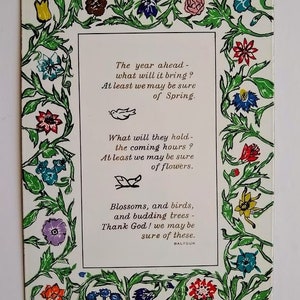 The year ahead -
what will it bring ?
At least we may be sure
of Spring.
What will they hold-
the coming hours ?
At least we may be sure
of flowers.
Blossoms, and birds,
and budding trees -
Thank God ! we may be
sure of these.
BALFOUR